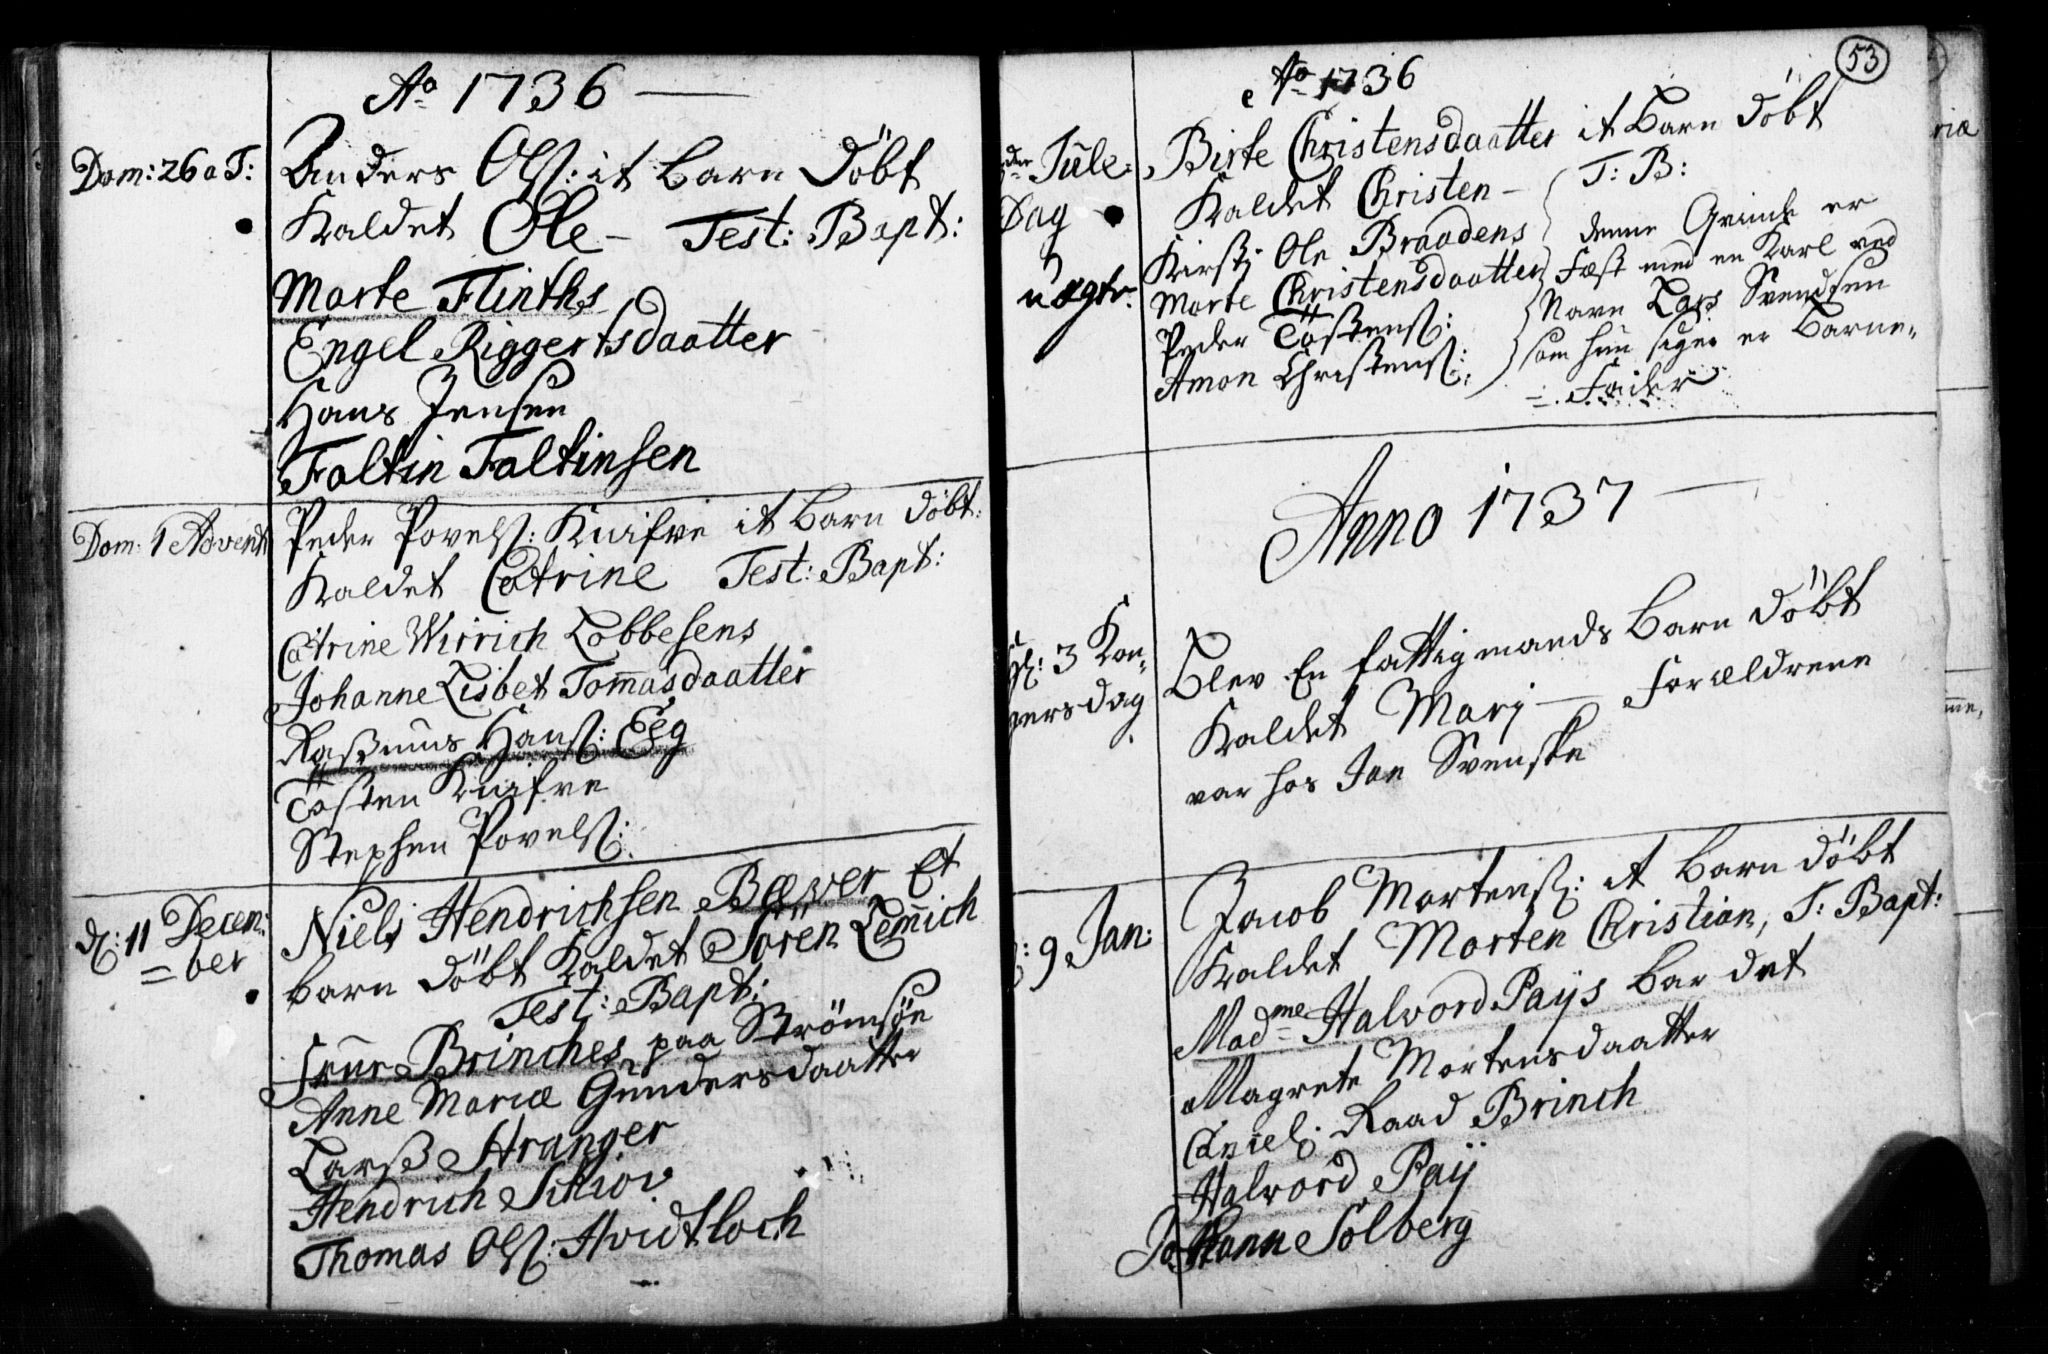 Ao 1736
Dom: 26 a T:
Anders Olß: it barn döbt
Kaldet Ole - Test: Bapt:
Marte Flinths
Engel Riggertsdaatter
Hans Jensen
Faltin Faltinsen
Dom: 1 Advent
Peder Povelß: Knifve it barn döbt:
Kaldet Catrine Test: Bapt:
Catrine Wirrich Lobbesens
Johanne Lisbet Tommasdaatter
Raßmus Hanß: Eeg
Tösten Knifve
Stephen Povelß:
d: 11 Decem:
= ber
Niels Hendrichsen Bæver Et
barn döbt Kaldet Sören Lemmich
Test: Bapt:
Frue Brinches paa Strömsöe
Anne Mariæ Gundersdaatter
Larß Hranger
Hendrich Schiöv
Thomas Olß: Hvidtloch
53
Ao 1736
Jule:
Dag
uægte.
Birte Christensdaatter it Barn döbt
Kaldet Christen - T: B:
Kirstj Ole Braadens
Marte Christensdaatter
Peder Töstenß:
Amon Christenß:
denne Qvinde er
fæst med en Karl ved
Navn Lars Svendsen
som hun siger er Barne=
= Fader
Anno 1737
3 Kon=
gersdag
Blev En fattig mands barn döbt
Kaldet Marj — Forældrene
var hos Jan Svenske
: 9 Jan:
Jacob Mortenß: it barn döbt
Kaldet Morten Christian, T: Bapt:
Madme Halvord Paÿs bar det
Magrete Mortensdaatter
Cansel: Raad Brinch
Halvord Paÿ
Johann Solberg